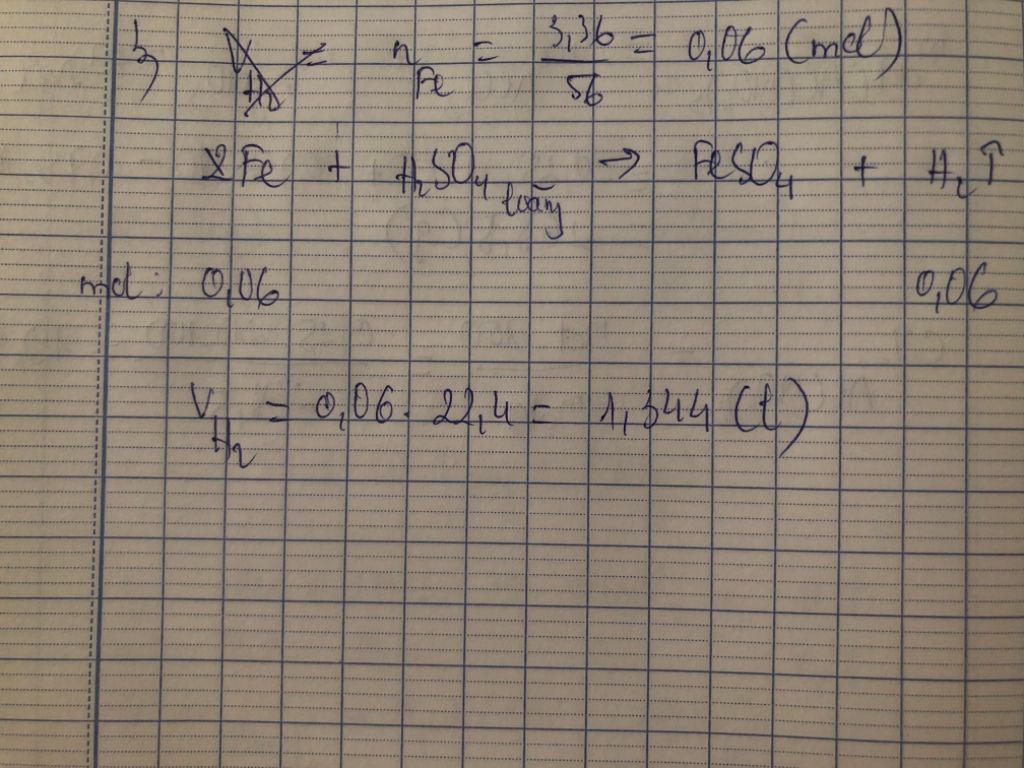 3) n Fe = 3,36/56 = 0,06 (mol)
Fe + H₂SO₄ loãng → FeSO₄ + H₂↑
mol: 0,06 0,06
V H₂ = 0,06 . 22,4 = 1,344 (l)